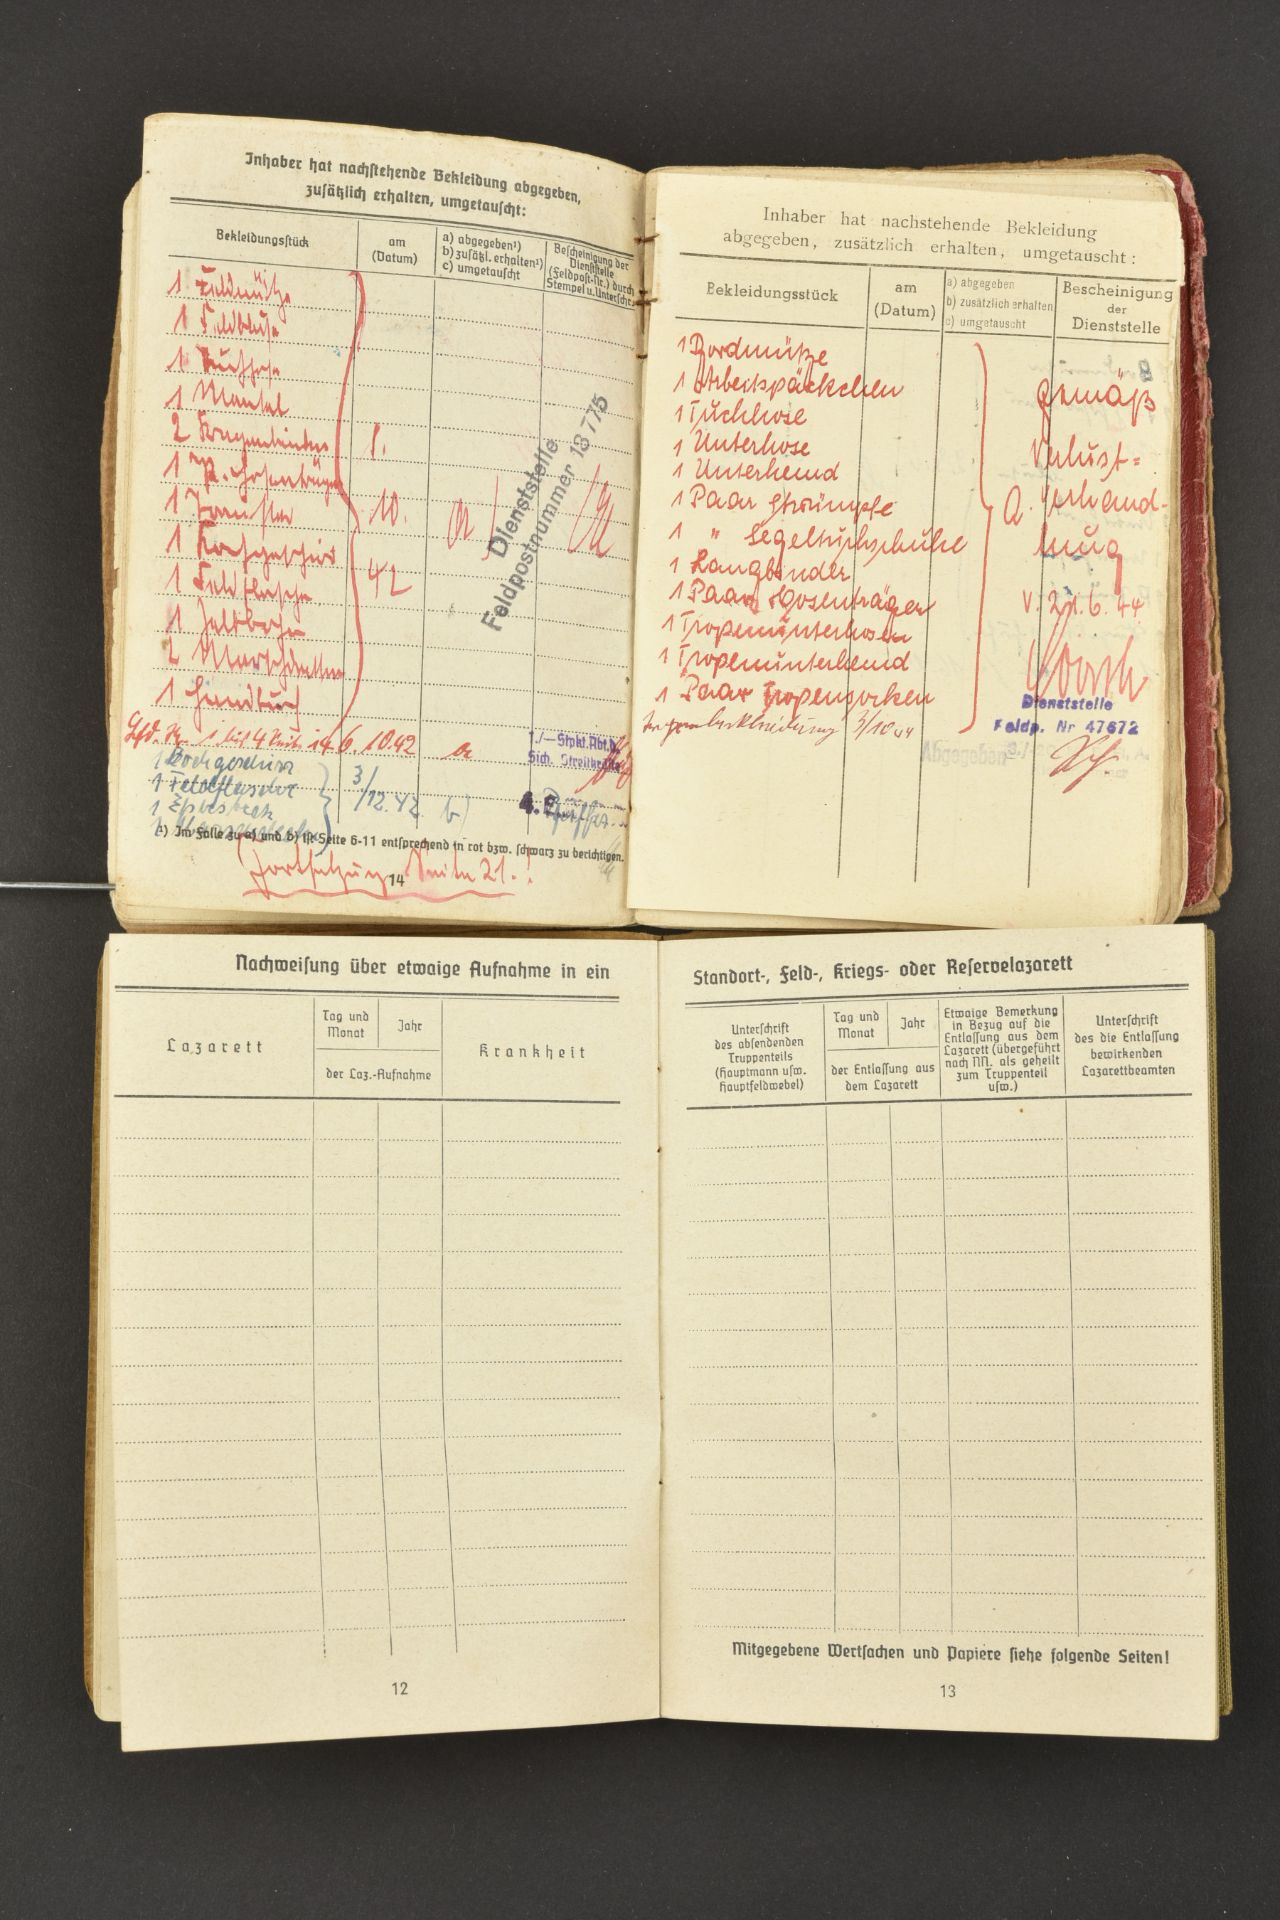 Inhaber hat nachstehende Bekleidung abgegeben,
zusätzlich erhalten, umgetauscht:
Bekleidungsstück
am
(Datum)
a) abgegeben¹)
b) zusätzl. erhalten¹)
c) umgetauscht
Bescheinigung der
Dienststelle
(Feldpost-Nr.) durch
Stempel u. Unterschr.
1 Feldmütze
1 Feldbluse
1 Tuchhose
1 Mantel
2 Kragenbinden
1 P. Hosenträger
1 Tornister
1 Kochgeschirr
1 Feldflasche
1 Zeltbahn
1 Handtuch
1.
10.
42
a
Dienststelle
Feldpostnummer 18 775
Lfd. Nr. 1 bis 4
6. 10.42
a
Sich. Streitkräfte
1 Kochgeschirr
1 Feldflasche
1 Essbesteck
3/12.42
b)
¹) Im Falle zu a) und b) ist Seite 6-11 entsprechend in rot bzw. schwarz zu berichtigen.
Fortsetzung Seite 21.!
14
Inhaber hat nachstehende Bekleidung
abgegeben, zusätzlich erhalten, umgetauscht:
Bekleidungsstück
am
(Datum)
a) abgegeben
b) zusätzlich erhalten
c) umgetauscht
Bescheinigung
der
Dienststelle
1 Bordmütze
1 Arbeitspäckchen
1 Tuchhose
1 Unterhose
1 Unterhemd
1 Paar Strümpfe
1 " Segeltuchschuhe
1 Paar Hosenträger
1 Tropenunterhosen
1 Tropenunterhemd
1 Paar Tropensocken
3/10 44
gemäß
Verlust-
a.
Verhand-
lung
v. 6. 44
Dienststelle
Feldp. Nr 47672
Abgegeben
Nachweisung über etwaige Aufnahme in ein
Lazarett
Tag und
Monat
Jahr
der Laz.-Aufnahme
Krankheit
12
Standort-, Feld-, Kriegs- oder Reservelazarett
Unterschrift
des absendenden
Truppenteils
(Hauptmann usw.
Hauptfeldwebel)
Tag und
Monat
Jahr
der Entlassung aus
dem Lazarett
Etwaige Bemerkung
in Bezug auf die
Entlassung aus dem
Lazarett (übergeführt
nach NN. als geheilt
zum Truppenteil
usw.)
Unterschrift
des die Entlassung
bewirkenden
Lazarettbeamten
Mitgegebene Wertsachen und Papiere siehe folgende Seiten!
13